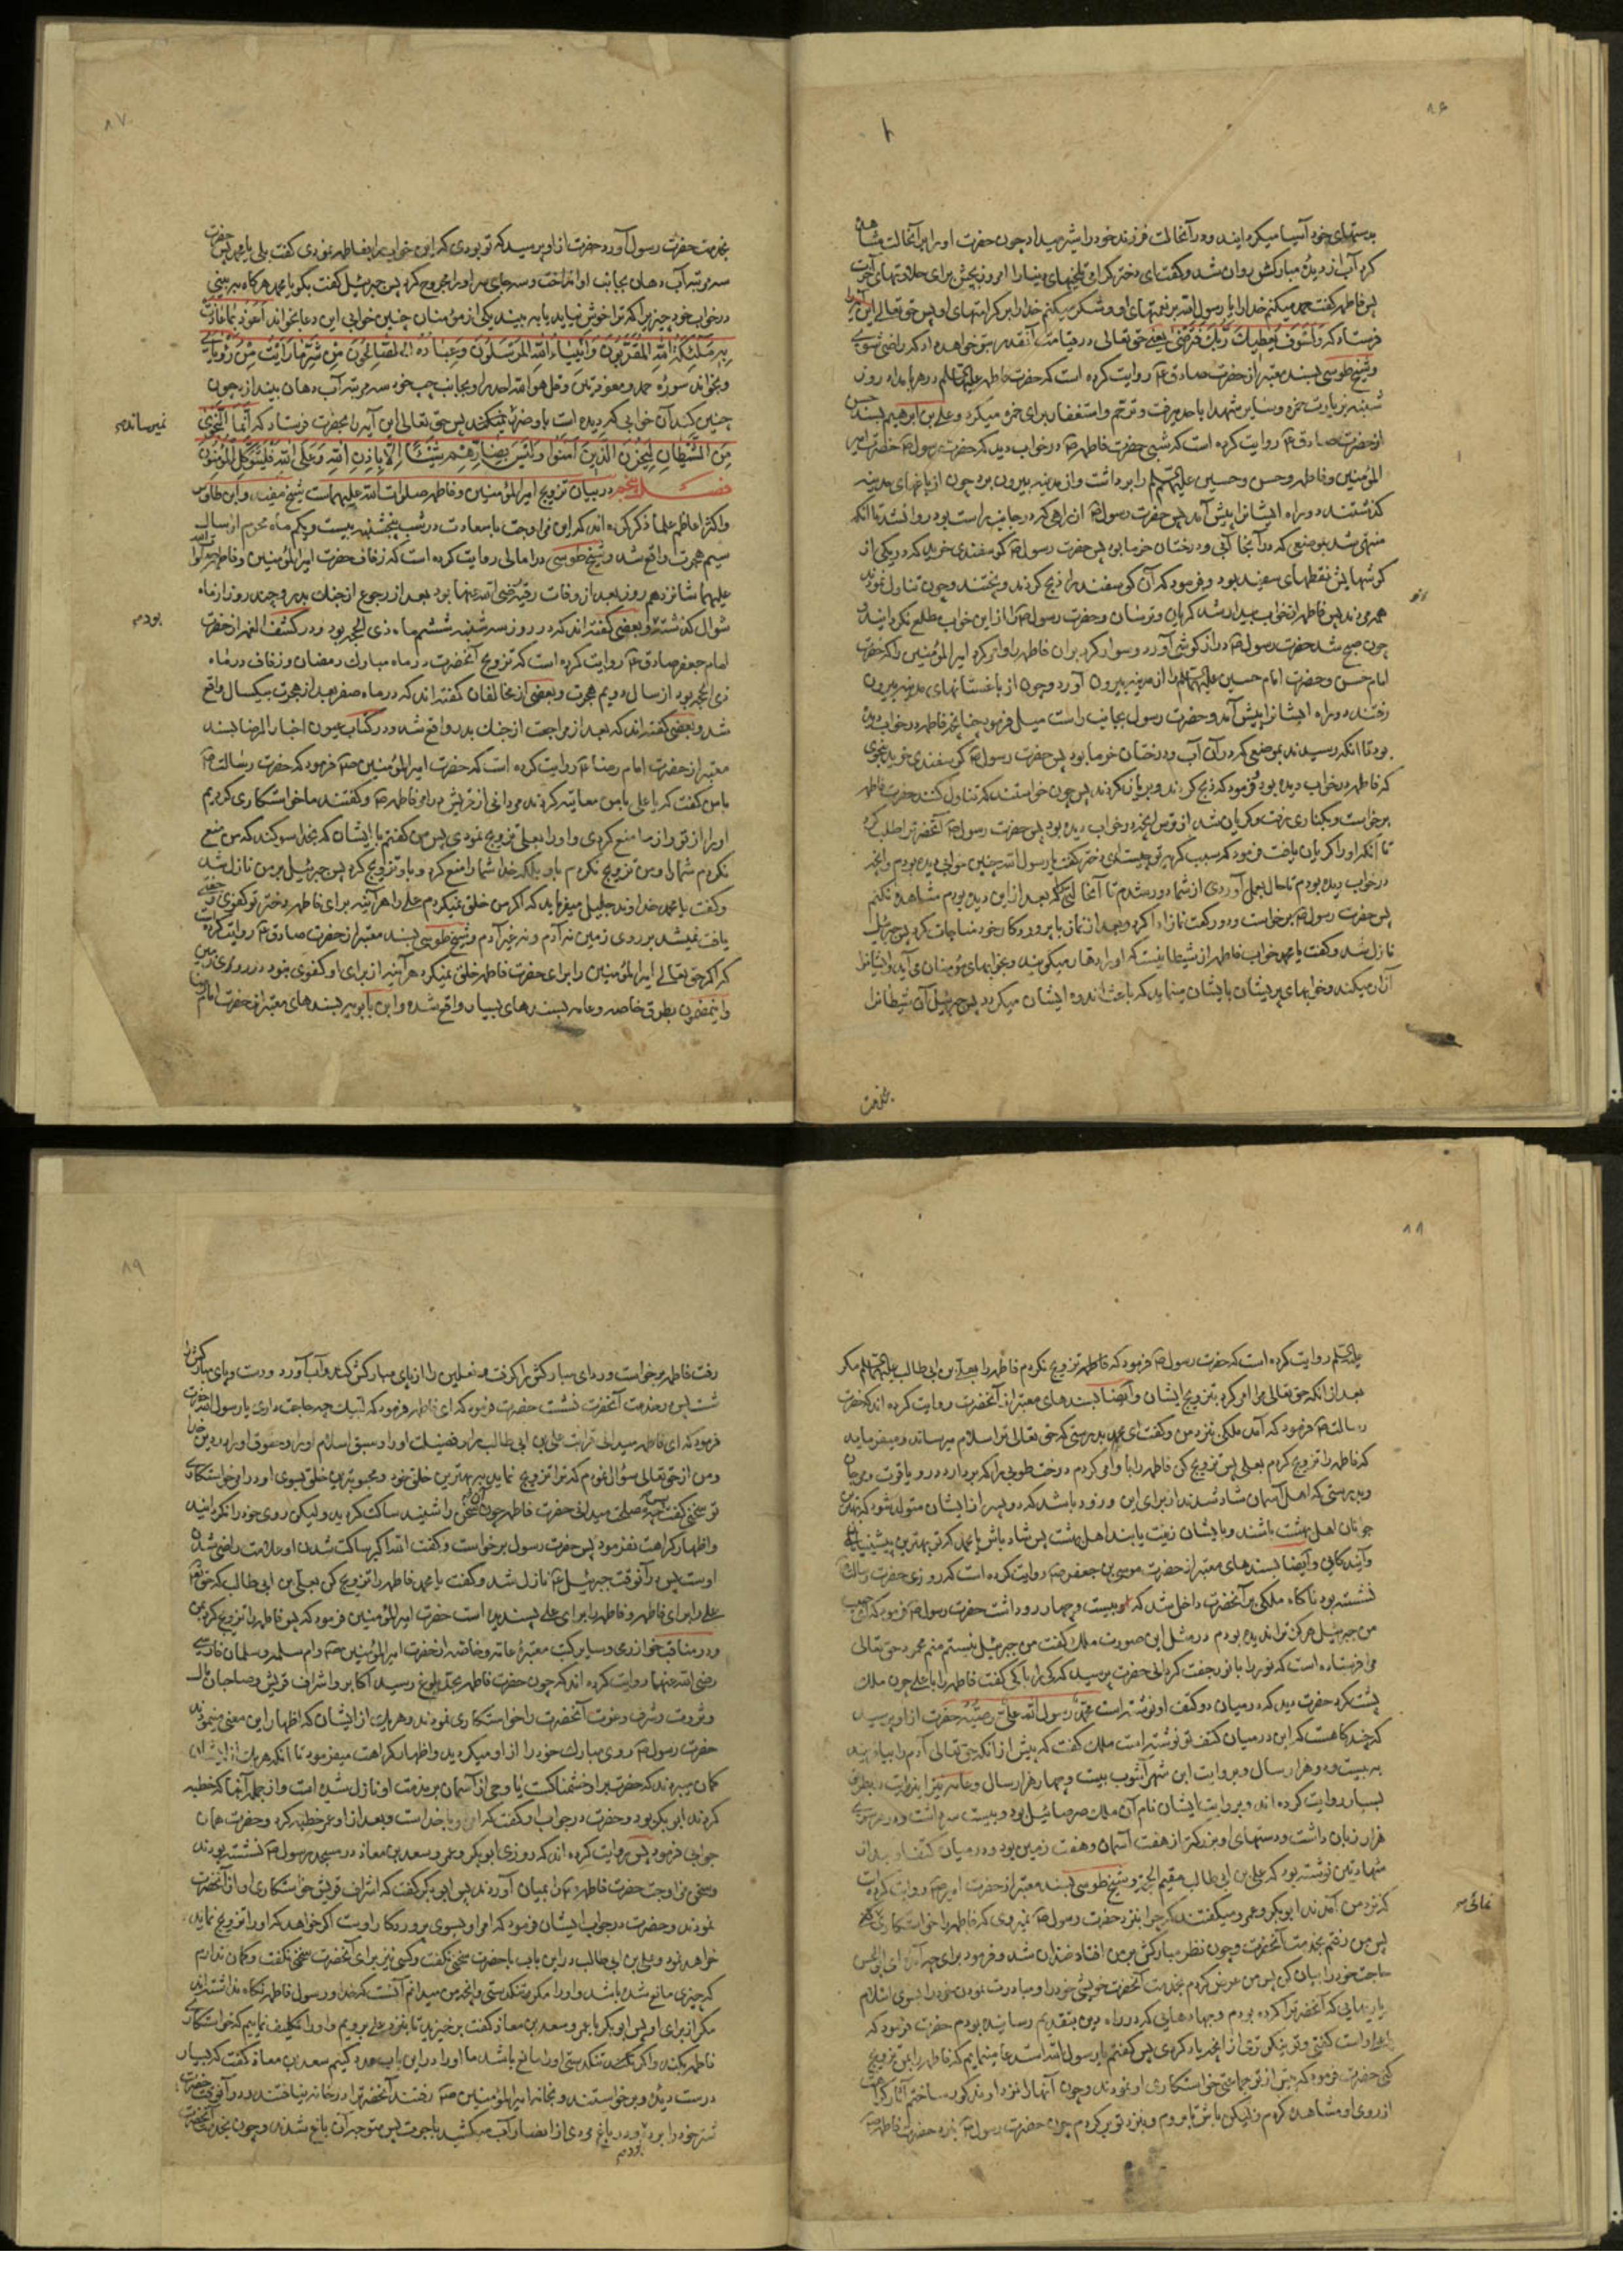 ۸۶
بدستهای خود آسیا میکردانید و در آنحالت فرزند خود را شیر میداد چون حضرت او را بر آنحالت مشاهده
کرد آب از دیدهٔ مبارکش روان شد و گفت ای دختر گرامی تلخیهای دنیا را امروز بچش برای حلاوتهای آخرت
پس فاطمه گفت حمد میکنم خدا را یا رسول الله بر نعمتهای او و شکر میکنم خدا را بر کرامتهای او پس حق تعالی این آیه را
فرستاد که ولسوف یعطیک ربک فترضی یعنی حق تعالی در قیامت آنقدر بتو خواهد داد که راضی شوی
و شیخ طوسی بسند معتبر از حضرت صادق ع روایت کرده است که حضرت فاطمه علیها السلام در هر بامداد روز
شنبه بزیارت حمزه و سایر شهدا باحد میرفت و ترحم و استغفار برای حمزه میکرد و علی بن ابرهیم بسند حسن
از حضرت صادق ع روایت کرده است که شبی حضرت فاطمه ص در خواب دید که حضرت رسول ص حضرت امیر
المؤمنین و فاطمه و حسن و حسین علیهم السلام را برداشت و از مدینه بیرون برد چون از باغهای مدینه
گذشتند دو راه ایشانرا پیش آمد پس حضرت رسول ص از راهی که در جانب راست بود روانشد تا آنکه
منتهی شد بموضعی که در آنجا آبی و درختان خرما بود پس حضرت رسول ص گوسفندی خرید که در یکی از
گوشهایش نقطهای سفید بود و فرمود که آن گوسفند را ذبح کردند و پختند و چون تناول نمودند
همه مردند پس فاطمه از خواب بیدار شد گریان و ترسان و حضرت رسول ص را از این خواب مطلع نکردانید و
چون صبح شد حضرت رسول ص دراز گوشی آورد و سوار کرد بر آن فاطمه را و امر کرد امیر المؤمنین را که حضرت
امام حسن و حضرت امام حسین علیهما السلام را از مدینه بیرون آورد و چون از باغستانهای مدینه بیرون
رفتند دو راه ایشانرا پیش آمد و حضرت رسول بجانب راست میل فرمود چنانچه فاطمه در خواب دیده
بود تا آنکه رسیدند بموضعی که در آن آب و درختان خرما بود پس حضرت رسول ص گوسفندی خرید بنحوی
که فاطمه در خواب دیده بود و فرمود که ذبح کردند و بریان کردند پس چون خواستند که تناول کنند حضرت فاطمه
برخواست و بکناری رفت و گریان شد از ترس آنچه در خواب دیده بود پس حضرت رسول ص آنحضرترا طلب کرد
تا آنکه او را گریان یافت فرمود که سبب گریهٔ تو چیست ای دختر گفت یا رسول الله چنین خوابی دیده بودم و آنچه
در خواب دیده بودم تا حال بعمل آوردی از شما دور شدم تا آنحالتی که بعد از این دیده بودم مشاهده نکنم
پس حضرت رسول ص برخواست و دو رکعت نماز ادا کرد و بعد از نماز با پروردگار خود مناجات کرد پس جبرئیل
نازل شد و گفت یا محمد خواب فاطمه از شیطانیست که او را دهار میگویند و بخوابهای مؤمنان می‌آید و ایشانرا
آزار میکند و خوابهای پریشان بایشان مینماید که باعث اندوه ایشان میگردد پس جبرئیل آن شیطانرا
بخدمت
۸۷
بخدمت حضرت رسول آورد حضرت از او پرسید که تو بودی که این خواب را بفاطمه نمودی گفت بلی یا محمد پس حضرت
سه مرتبه آب دهان بجانب او انداخت و سه جای سر او را مجروح کرد پس جبرئیل گفت بگو یا محمد هرگاه ببینی
در خواب خود چیزیرا که ترا خوش نیاید یا ببیند یکی از مؤمنان چنین خوابی این دعا بخواند اعوذ بما عاذت
به ملئکة الله المقربون وانبیاء الله المرسلون وعباده الصالحون من شر ما رایت من رؤیای
و بخواند سورهٔ حمد و معوذتین و قل هو الله احد را و بجانب چپ خود سه مرتبه آب دهان بیندازد چون
چنین کند آن خوابی که دیده است باو ضرر نمیکند پس حق تعالی این آیه را بحضرت فرستاد که انما النجوی
نمیرساند صح
من الشیطان لیحزن الذین آمنوا ولیس بضارهم شیئا الا باذن الله وعلی الله فلیتوکل المؤمنون
فصل پنجم در بیان تزویج امیر المؤمنین و فاطمه صلوات الله علیهما است شیخ مفید و ابن طاوس
و اکثر اعاظم علما ذکر کرده‌اند که این مزاوجت با سعادت در شب پنجشنبه بیست و یکم ماه محرم از سال
سیم هجرت واقع شد و شیخ طوسی در امالی روایت کرده است که زفاف حضرت امیر المؤمنین و فاطمه صلوات الله
علیهما شانزدهم روز بعد از وفات رقیه رضی الله عنها بود بعد از رجوع از جنک بدر و چند روز از ماه
شوال گذشته و بعضی گفته‌اند که در روز سه شنبه ششم ماه ذی الحجه بود و در کشف الغمه از حضرت
بود صح
امام جعفر صادق ع روایت کرده است که تزویج آنحضرت در ماه مبارک رمضان و زفاف در ماه
ذی الحجه بود از سال دویم هجرت و بعضی از مخالفان گفته‌اند که در ماه صفر بعد از هجرت بیکسال واقع
شد و بعضی گفته‌اند که بعد از مراجعت از جنک بدر واقع شد و در کتاب عیون اخبار الرضا بسند
معتبر از حضرت امام رضا ع روایت کرده است که حضرت امیر المؤمنین ص فرمود که حضرت رسالت ص
با من گفت که یا علی با من معاتبه کردند مردانی از قریش در امر فاطمه ص و گفتند ما خواستکاری کردیم
او را از تو و از ما منع کردی و او را بعلی تزویج نمودی پس من گفتم با ایشان که بخدا سوگند که من منع
نکردم شما را و من تزویج نکردم باو بلکه خدا شما را منع کرد و باو تزویج کرد پس جبرئیل بر من نازل شد
و گفت یا محمد خداوند جلیل میفرماید که اگر من خلق نمیکردم علی را هر آینه برای فاطمه دختر تو کفوی و جفتی
یافت نمیشد بر روی زمین نه آدم و نه غیر آدم و شیخ طوسی بسند معتبر از حضرت صادق ع روایت کرده است
که اگر حق تعالی امیر المؤمنین را برای حضرت فاطمه خلق نمیکرد هر آینه از برای او کفوی نبود در روی زمین
و اینمضمون بطرق خاصه و عامه بسندهای بسیار واقع شده و ابن بابویه بسندهای معتبر از حضرت امام رضا
۸۸
علیه السلام روایت کرده است که حضرت رسول ص فرمود که فاطمه تزویج نکردم فاطمه را بعلی بن ابی طالب علیهما السلام مگر
بعد از آنکه حق تعالی مرا امر کرد بتزویج ایشان و ایضا بسندهای معتبر از آنحضرت روایت کرده‌اند که حضرت
رسالت ص فرمود که آمد ملکی بنزد من و گفت ای محمد بدرستی که حق تعالی ترا سلام میرساند و میفرماید
که فاطمه را تزویج کردم بعلی پس تزویج کن فاطمه را باو امر کردم درخت طوبی را که بردارد در و یاقوت و مرجان
و بدرستی که اهل آسمان شاد شدند از برای این و زود باشد که دو پسر از ایشان متولد شود که بهترین
جوانان اهل بهشت باشند و بایشان زینت یابند اهل بهشت پس شاد باش یا محمد که تو بهترین پیشینیان
و آیندکانی و ایضا بسندهای معتبر از حضرت موسی بن جعفر ص روایت کرده است که روزی حضرت رسالت
نشسته بود ناگاه ملکی بر آنحضرت داخل شد که او بیست و چهار رو داشت حضرت رسول ص فرمود که ای حبیب
من جبرئیل هرگز ترا ندیده بودم در مثل این صورت ملک گفت من جبرئیل نیستم منم محمود حق تعالی
مرا فرستاده است که نور را با نور جفت گردانی حضرت پرسید که کی را با کی گفت فاطمه را با علی چون ملک
پشت کرد حضرت دید که در میان دو کتف او نوشته است محمد رسول الله علی وصیه حضرت از او پرسید
که چند گاهست که این در میان کتف تو نوشته است ملک گفت که پیش از آنکه حق تعالی آدم را بیافریند
به بیست و دو هزار سال و بروایت ابن شهر آشوب بیست و چهار هزار سال و عامه نیز این روایت را بطرق
بسیار روایت کرده‌اند و بروایت ایشان نام آن ملک صرصائیل بود و بیست سر داشت و در هر سری
هزار زبان داشت و دستهای او بزرکتر از هفت آسمان و هفت زمین بود و در میان کتف او بعد از
شهادتین نوشته بود که علی بن ابی طالب مقیم الحجة و شیخ طوسی بسند معتبر از حضرت امیر ص روایت کرده است
که نزد من آمدند ابو بکر و عمر و میگفتند که چرا بنزد حضرت رسول ص نمیروی که فاطمه را خواستکاری کنی
نمائی صح
پس من رفتم بخدمت آنحضرت و چون نظر مبارکش بر من افتاد خندان شد و فرمود برای چه آمدهٔ ای ابو الحسن
حاجت خود را بیان کن پس من عرض کردم بخدمت آنحضرت خویشی خود را و مبادرت نمودن خود را بسوی اسلام
یاریهایی که آنحضرترا کرده بودم و جهادهایی که در راه دین بتقدیم رسانیده بودم حضرت فرمود که
یا علی راست گفتی و تو نیکوتری از آنچه یاد کردی پس گفتم یا رسول الله استدعا مینمایم که فاطمه را بمن تزویج
کنی حضرت فرمود که پیش از تو جماعتی خواستکاری او نمودند و چون آنها را نزد او مذکور ساختم آثار کراهت
از روی او مشاهده کردم ولیکن باش تا بروم و بنزد تو برگردم چون حضرت رسول ص بنزد حضرت فاطمه
۸۹
رفت فاطمه برخواست و ردای مبارکش را گرفت و نعلین را از پای مبارکش کند و آب آورد و دست و پای مبارکش را
شست پس در خدمت آنحضرت نشست حضرت فرمود که ای فاطمه فرمود که لبیک چه حاجت داری یا رسول الله حضرت
فرمود که ای فاطمه میدانی قرابت علی بن ابی طالب را و فضیلت او را و سبق اسلام او را و حقوق او را بر دین خدا
و من از حق تعالی سؤال نمودم که ترا تزویج نماید به بهترین خلق خود و محبوبترین خلق بسوی او و در او خواستکاری
تو سخنی گفت چه مصلحت میدانی حضرت فاطمه چون آن سخن را شنید ساکت گردید ولیکن روی خود را نگردانید
و اظهار کراهت نفرمود پس حضرت رسول برخواست و گفت الله اکبر ساکت شدن او علامت راضی شدن
اوست پس در آنوقت جبرئیل ع نازل شد و گفت یا محمد فاطمه را تزویج کن بعلی بن ابی طالب که حق تعالی
علی را برای فاطمه و فاطمه را برای علی پسندیده است حضرت امیر المؤمنین فرمود که پس فاطمه را تزویج کرد بمن
و در مناقب خوارزمی و سایر کتب معتبرهٔ عامه و خاصه از حضرت امیر المؤمنین ص و ام سلمه و سلمان فارسی
رضی الله عنهما روایت کرده‌اند که چون حضرت فاطمه بحد بلوغ رسید اکابر و اشراف قریش و صاحبان مال
و ثروت و شرف و عزت آنحضرت را خواستکاری نمودند و هر یک از ایشان که اظهار این معنی مینمودند
حضرت رسول ص روی مبارک خود را از او میگردانید و اظهار کراهت میفرمود تا آنکه هر یک از ایشان
گمان میبردند که حضرت بر او خشمناکست یا وحی از آسمان در مذمت او نازل شده است و از جمله آنها که خطبه
کردند ابو بکر بود و حضرت در جواب او گفت که امر او با خداست و بعد از او عمر خطبه کرد و حضرت همان
جوابی فرمود پس روایت کرده‌اند که روزی ابو بکر و عمر و سعد بن معاذ در مسجد رسول ص نشسته بودند
و سخن مزاوجت حضرت فاطمه را بمیان آوردند پس ابو بکر گفت که اشراف قریش خواستکاری او از آنحضرت
نمودند و حضرت در جواب ایشان فرمود که امر او بسوی پروردگار اوست اگر خواهد که او را تزویج نماید
خواهد نمود و علی بن ابی طالب در این باب با حضرت سخنی نگفت و کسی نیز برای آنحضرت سخنی نگفت و گمان ندارم
که چیزی مانع شده باشد او را مگر تنگدستی و آنچه من میدانم آنست که خدا و رسول فاطمه را نگاه نداشته‌اند
مگر از برای او پس ابو بکر با عمر و سعد بن معاذ گفت برخیزید تا بنزد علی برویم و او را تکلیف نمائیم که خواستکاری
فاطمه بکند و اگر تنگدستی او را مانع باشد ما او را در این باب مدد کنیم سعد بن معاذ گفت که بسیار
درست دیدهٔ و برخواستند و بخانه امیر المؤمنین ص رفتند آنحضرترا در خانه نیافتند و در آنوقت حضرت
شتر خود را برده بود و در باغ مردی از انصار آب میکشید باجرت پس متوجه آن باغ شدند و چون بخدمت آنحضرت